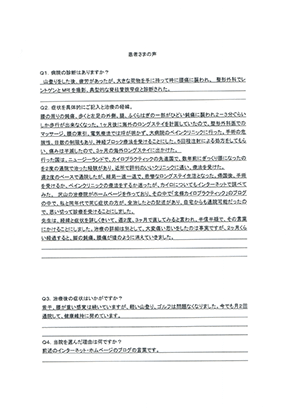 患者さまの声
Q1. 病院の診断はありますか？
山登りをした後、疲労があったが、大きな荷物を手に持って時に腰痛に襲われ、整形外科でレ
ントゲンとMRを撮影、典型的な脊柱管狭窄症と診断された。
Q2. 症状を具体的にご記入と治療の経緯。
腰の周りの鈍痛、歩くと左足の外側、腿、ふくらはぎの一部がひどい鈍痛に襲われ2～3分ぐらい
しか歩行が出来なくなった。1ヶ月後に海外のロングステイを計画していたので、整形外科医での
マッサージ、腰の牽引、電気療法では埒が明かず、大病院のペインクリニックに行った。手術の危
険性、日数の制限もあり、神経ブロック療法を受けることにした。5回程注射による処方をしてもら
い、痛みは半減したので、3ヶ月の海外ロングステイに出かけた。
行った国は、ニュージーランドで、カイロプラクティックの先進国で、数年前にぎっくり腰になったの
を2度の通院で治った経験があり、近所で評判のいいクリニックに通い、療法を受けた。
週2度のペースで通院したが、結局一進一退で、悲惨なロングステイ生活となった。帰国後、手術
を受けるか、ペインクリニックの療法をするか迷ったが、カイロについてもインターネットで調べて
みた。沢山の治療院がホームページを作っており、その中で「北極カイロプラクティック」のブログ
の中で、私と同年代で同じ症状の方が、全治したとの記述があり、自宅からも通院可能だったの
で、思い切って診療を受けることにしました。
先生は、経緯と症状を詳しくきいて、週2度、3ヶ月で直してみると言われ、半信半疑で、その言葉
にかけることにしました。治療の詳細は別として、大変痛い思いをしたのは事実ですが、2ヶ月くら
い経過すると、脚の鈍痛、腰痛が嘘のように消えていきました。
Q3. 治療後の症状はいかがですか？
若干、腰が重い感覚は続いていますが、軽い山登り、ゴルフは問題なくなりました。今でも月2回
通院して、健康維持に努めています。
Q4. 当院を選んだ理由は何ですか？
前述のインターネット・ホームページのブログの言葉です。